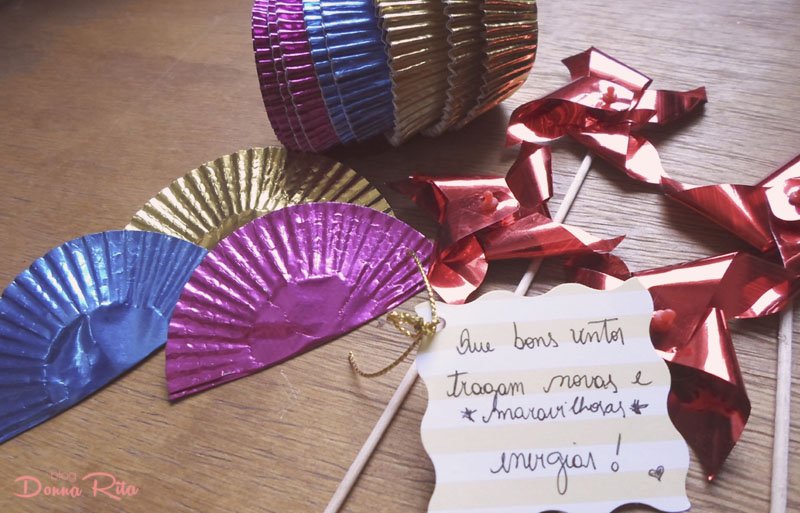 Que bons ventos
tragam novas e
*maravilhosas*
energias!
blog
Donna Rita